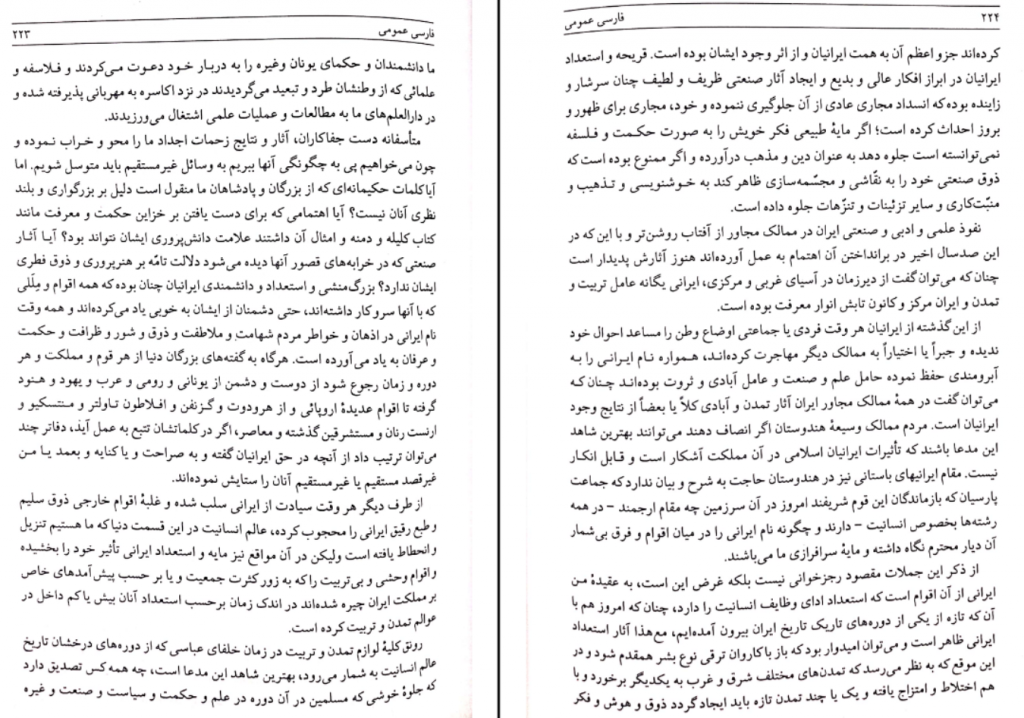 فارسی عمومی ۲۲۳
ما دانشمندان و حکمای یونان وغیره را به دربار خود دعوت می‌کردند و فلاسفه و
علمائی که از وطنشان طرد و تبعید می‌گردیدند در نزد اکاسره به مهربانی پذیرفته شده و
در دارالعلم‌های ما به مطالعات و عملیات علمی اشتغال می‌ورزیدند.
متأسفانه دست جفاکاران، آثار و نتایج زحمات اجداد ما را محو و خراب نموده و
چون می‌خواهیم پی به چگونگی آنها ببریم به وسائل غیرمستقیم باید متوسل شویم. اما
آیا کلمات حکیمانه‌ای که از بزرگان و پادشاهان ما منقول است دلیل بر بزرگواری و بلند
نظری آنان نیست؟ آیا اهتمامی که برای دست یافتن بر خزاین حکمت و معرفت مانند
کتاب کلیله و دمنه و امثال آن داشتند علامت دانش‌پروری ایشان نتواند بود؟ آیا آثار
صنعتی که در خرابه‌های قصور آنها دیده می‌شود دلالت تامّه بر هنرپروری و ذوق فطری
ایشان ندارد؟ بزرگ‌منشی و استعداد و دانشمندی ایرانیان چنان بوده که همه اقوام و مِلَلی
که با آنها سروکار داشته‌اند، حتی دشمنان از ایشان به خوبی یاد می‌کرده‌اند و همه وقت
نام ایرانی در اذهان و خواطر مردم شهامت و ملاطفت و ذوق و شور و ظرافت و حکمت
و عرفان به یاد می‌آورده است. هرگاه به گفته‌های بزرگان دنیا از هر قوم و مملکت و هر
دوره و زمان رجوع شود از دوست و دشمن از یونانی و رومی و عرب و یهود و هنود
گرفته تا اقوام عدیدهٔ اروپائی و از هرودوت و گزنفن و افلاطون تا ولتر و منتسکیو و
ارنست رنان و مستشرقین گذشته و معاصر، اگر در کلماتشان تتبع به عمل آید، دفاتر چند
می‌توان ترتیب داد از آنچه در حق ایرانیان گفته و به صراحت و یا کنایه و بعمد یا من
غیرقصد مستقیم یا غیرمستقیم آنان را ستایش نموده‌اند.
از طرف دیگر هر وقت سیادت از ایرانی سلب شده و غلبهٔ اقوام خارجی ذوق سلیم
و طبع رقیق ایرانی را محجوب کرده، عالم انسانیت در این قسمت دنیا که ما هستیم تنزیل
و انحطاط یافته است ولیکن در آن مواقع نیز مایه و استعداد ایرانی تأثیر خود را بخشیده
و اقوام وحشی و بی‌تربیت را که به زور کثرت جمعیت و یا بر حسب پیش‌آمدهای خاص
بر مملکت ایران چیره شده‌اند در اندک زمان برحسب استعداد آنان بیش یا کم داخل در
عوالم تمدن و تربیت کرده است.
رونق کلیهٔ لوازم تمدن و تربیت در زمان خلفای عباسی که از دوره‌های درخشان تاریخ
عالم انسانیت به شمار می‌رود، بهترین شاهد این مدعا است، چه همه کس تصدیق دارد
که جلوهٔ خوشی که مسلمین در آن دوره در علم و حکمت و سیاست و صنعت و غیره
۲۲۴ فارسی عمومی
کرده‌اند جزو اعظم آن به همت ایرانیان و از اثر وجود ایشان بوده است. قریحه و استعداد
ایرانیان در ابراز افکار عالی و بدیع و ایجاد آثار صنعتی ظریف و لطیف چنان سرشار و
زاینده بوده که انسداد مجاری عادی از آن جلوگیری ننموده و خود، مجاری برای ظهور و
بروز احداث کرده است؛ اگر مایهٔ طبیعی فکر خویش را به صورت حکمت و فلسفه
نمی‌توانسته است جلوه دهد به عنوان دین و مذهب درآورده و اگر ممنوع بوده است که
ذوق صنعتی خود را به نقّاشی و مجسّمه‌سازی ظاهر کند به خوشنویسی و تذهیب و
منبّت‌کاری و سایر تزئینات و تنزّهات جلوه داده است.
نفوذ علمی و ادبی و صنعتی ایران در ممالک مجاور از آفتاب روشن‌تر و با این که در
این صدسال اخیر در برانداختن آن اهتمام به عمل آورده‌اند هنوز آثارش پدیدار است
چنان که می‌توان گفت از دیرزمان در آسیای غربی و مرکزی، ایرانی یگانه عامل تربیت و
تمدن و ایران مرکز و کانون تابش انوار معرفت بوده است.
از این گذشته از ایرانیان هر وقت فردی یا جماعتی اوضاع وطن را مساعد احوال خود
ندیده و جبراً یا اختیاراً به ممالک دیگر مهاجرت کرده‌اند، همواره نام ایرانی را به
آبرومندی حفظ نموده حامل علم و صنعت و عامل آبادی و ثروت بوده‌اند چنان که
می‌توان گفت در همهٔ ممالک مجاور ایران آثار تمدن و آبادی کلاً یا بعضاً از نتایج وجود
ایرانیان است. مردم ممالک وسیعهٔ هندوستان اگر انصاف دهند می‌توانند بهترین شاهد
این مدعا باشند که تأثیرات ایرانیان اسلامی در آن مملکت آشکار است و قابل انکار
نیست. مقام ایرانیهای باستانی نیز در هندوستان حاجت به شرح و بیان ندارد که جماعت
پارسیان که بازماندگان این قوم شریفند امروز در آن سرزمین چه مقام ارجمند – در همه
رشته‌ها بخصوص انسانیت – دارند و چگونه نام ایرانی را در میان اقوام و فرق بی‌شمار
آن دیار محترم نگاه داشته و مایهٔ سرافرازی ما می‌باشند.
از ذکر این جملات مقصود رجزخوانی نیست بلکه غرض این است، به عقیدهٔ من
ایرانی از آن اقوام است که استعداد ادای وظایف انسانیت را دارد، چنان که امروز هم با
آن که تازه از یکی از دوره‌های تاریک تاریخ ایران بیرون آمده‌ایم، مع‌هذا آثار استعداد
ایرانی ظاهر است و می‌توان امیدوار بود که باز با کاروان ترقی نوع بشر همقدم شود و در
این موقع که به نظر می‌رسد که تمدن‌های مختلف شرق و غرب به یکدیگر برخورد و با
هم اختلاط و امتزاج یافته و یک یا چند تمدن تازه باید ایجاد گردد ذوق و هوش و فکر